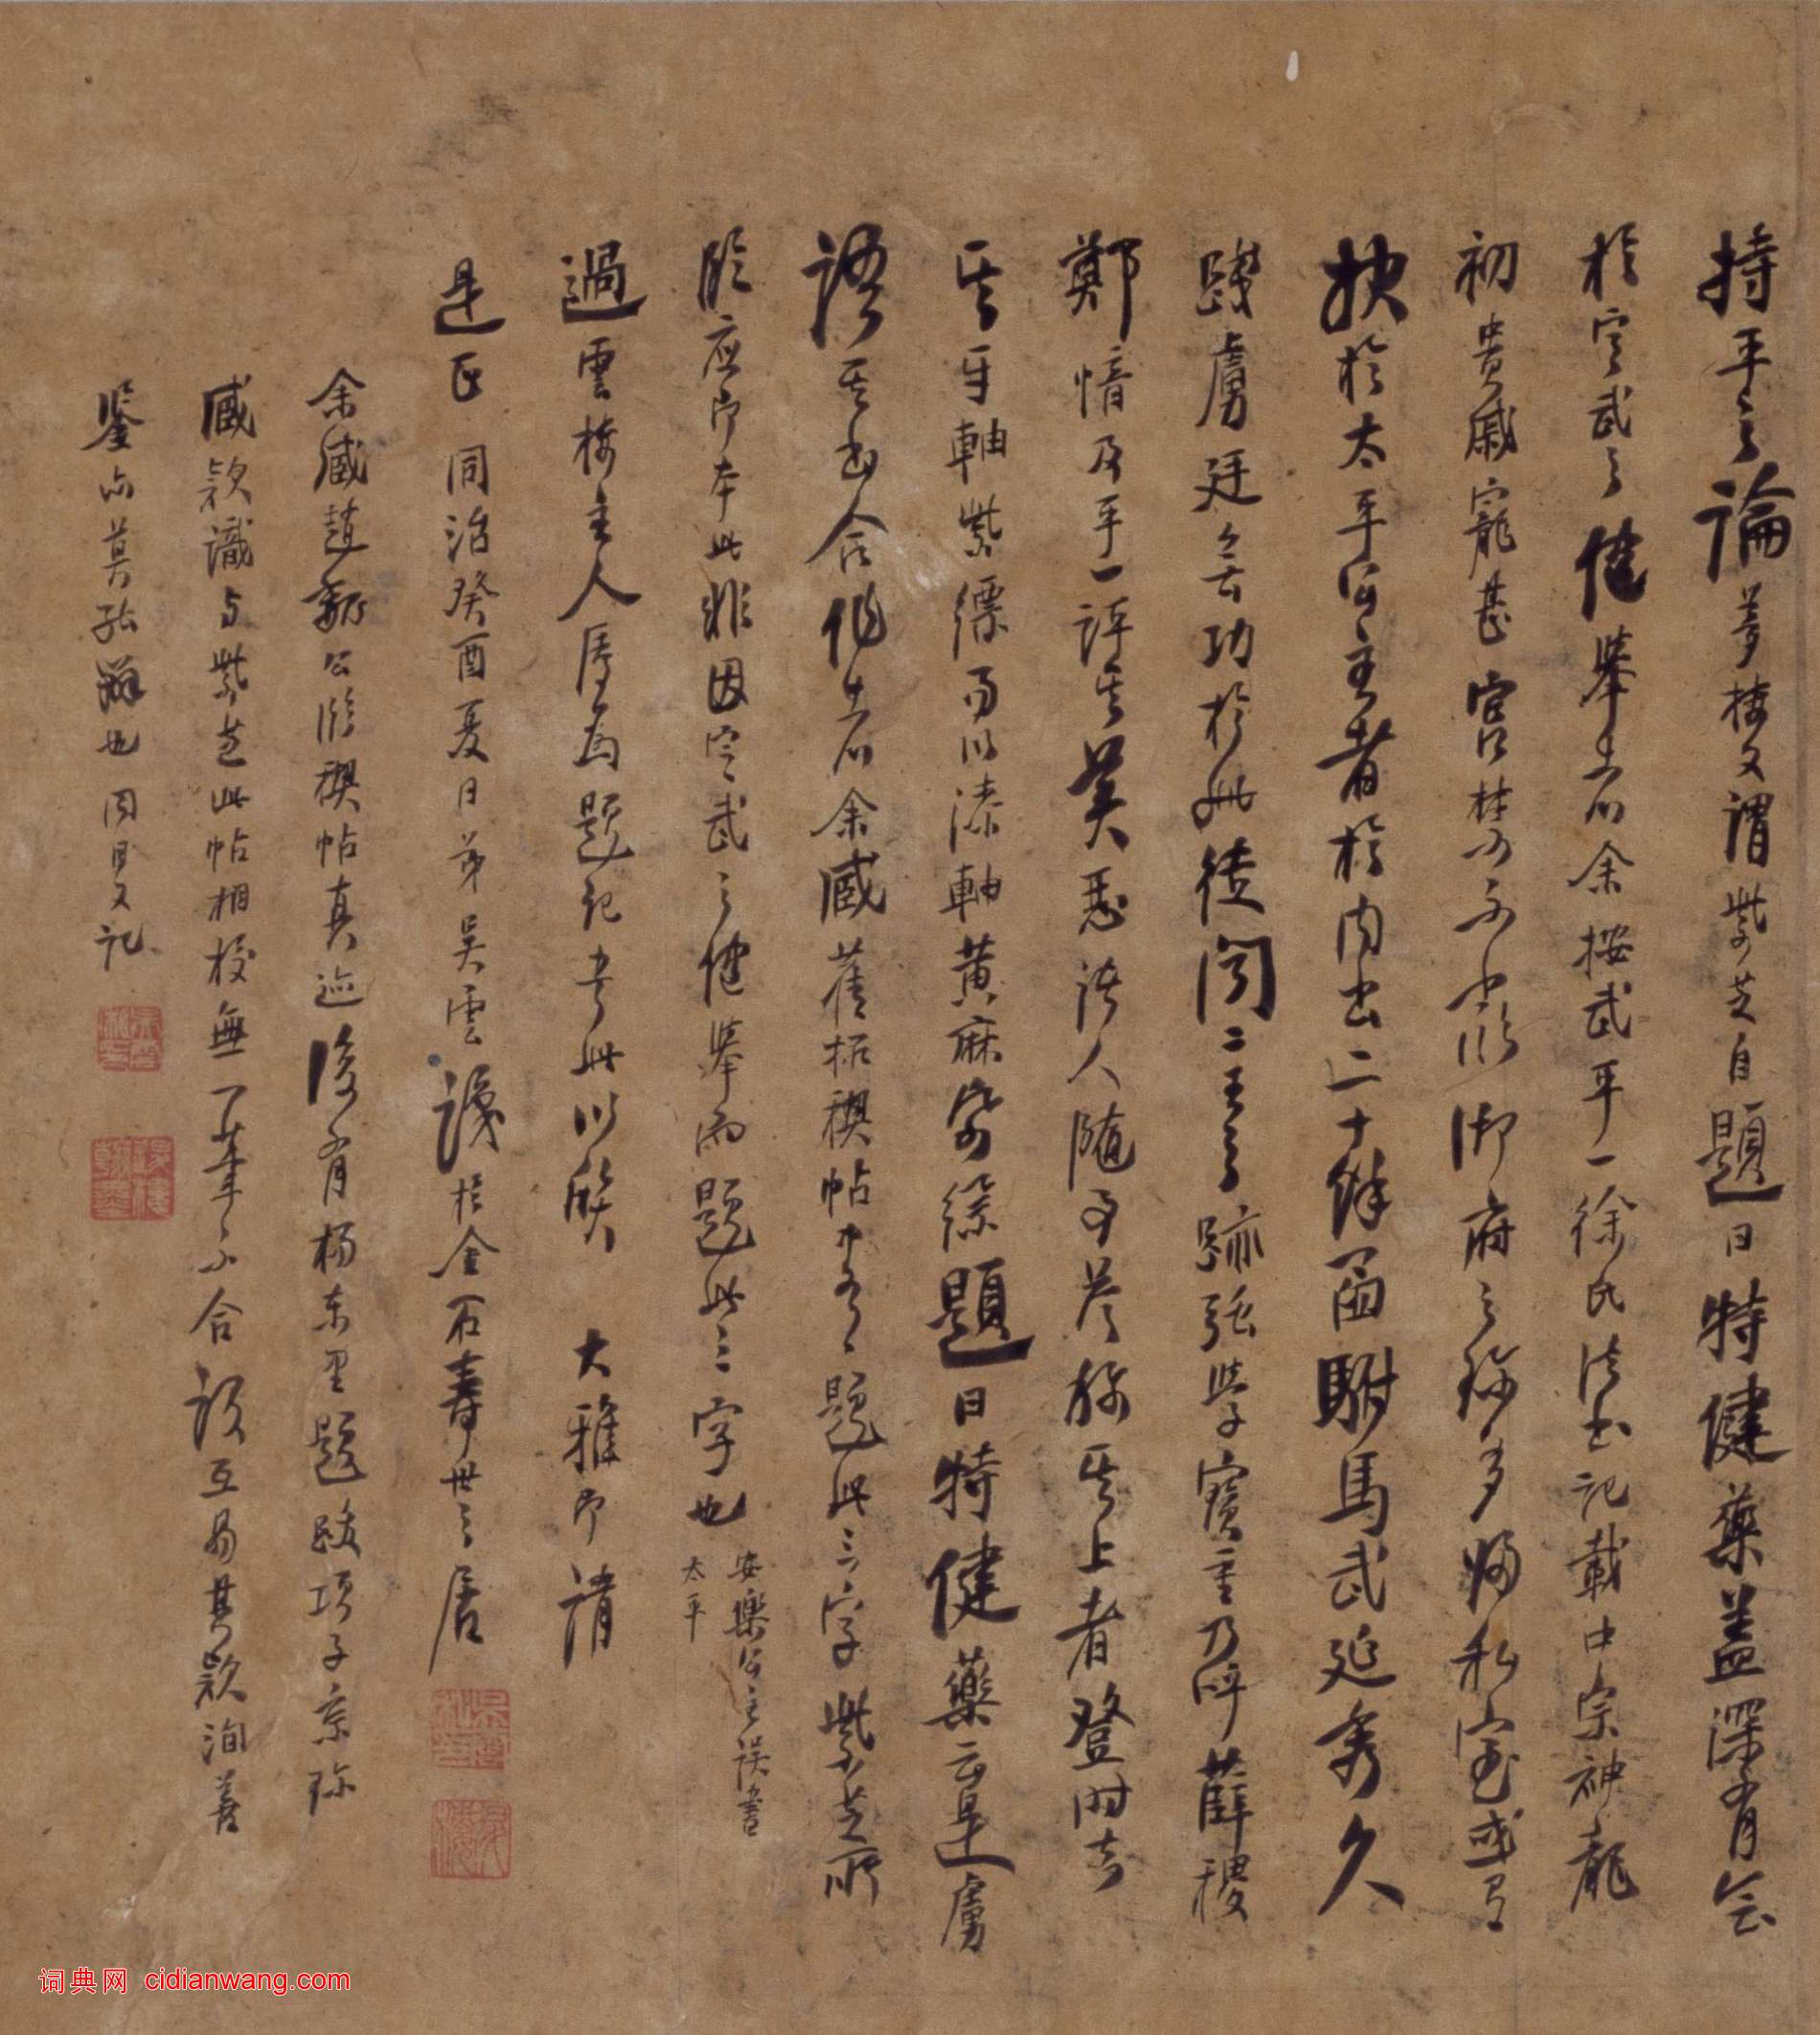 持平之論夢楼又謂紫芝自題曰特健藥蓋深有会
於定武之健举者余按武平一徐氏法书記載中宗神龍
初貴戚寵甚宮禁不御府之珍多歸私室或有
於太平公主者於内出二十餘函駙馬武延秀久
踐虜廷無功於此徒闻二王之跡强學寶重乃呼薛稷
鄭愔及平一評其善惡諸人随事答称其上者登时去
其牙軸紫褾易以漆軸黄麻紙褾題曰特健藥云是虜
語其书合作者余藏舊拓禊帖中有題此三字紫芝所
臨應即本此非因定武之健举而題此三字也 安樂公主誤書太平
過雲楼主人属為題記书此以 大雅即請
是正 同治癸酉夏日弟吴雲識於金石壽世之居
余藏趙魏公臨禊帖真迹後有楊东里題跋項子京珍
藏款識与紫芝此帖相校無一筆不合設互易其款洵善
鉴亦莫能辨也 同日又记
词典网 cidianwang.com